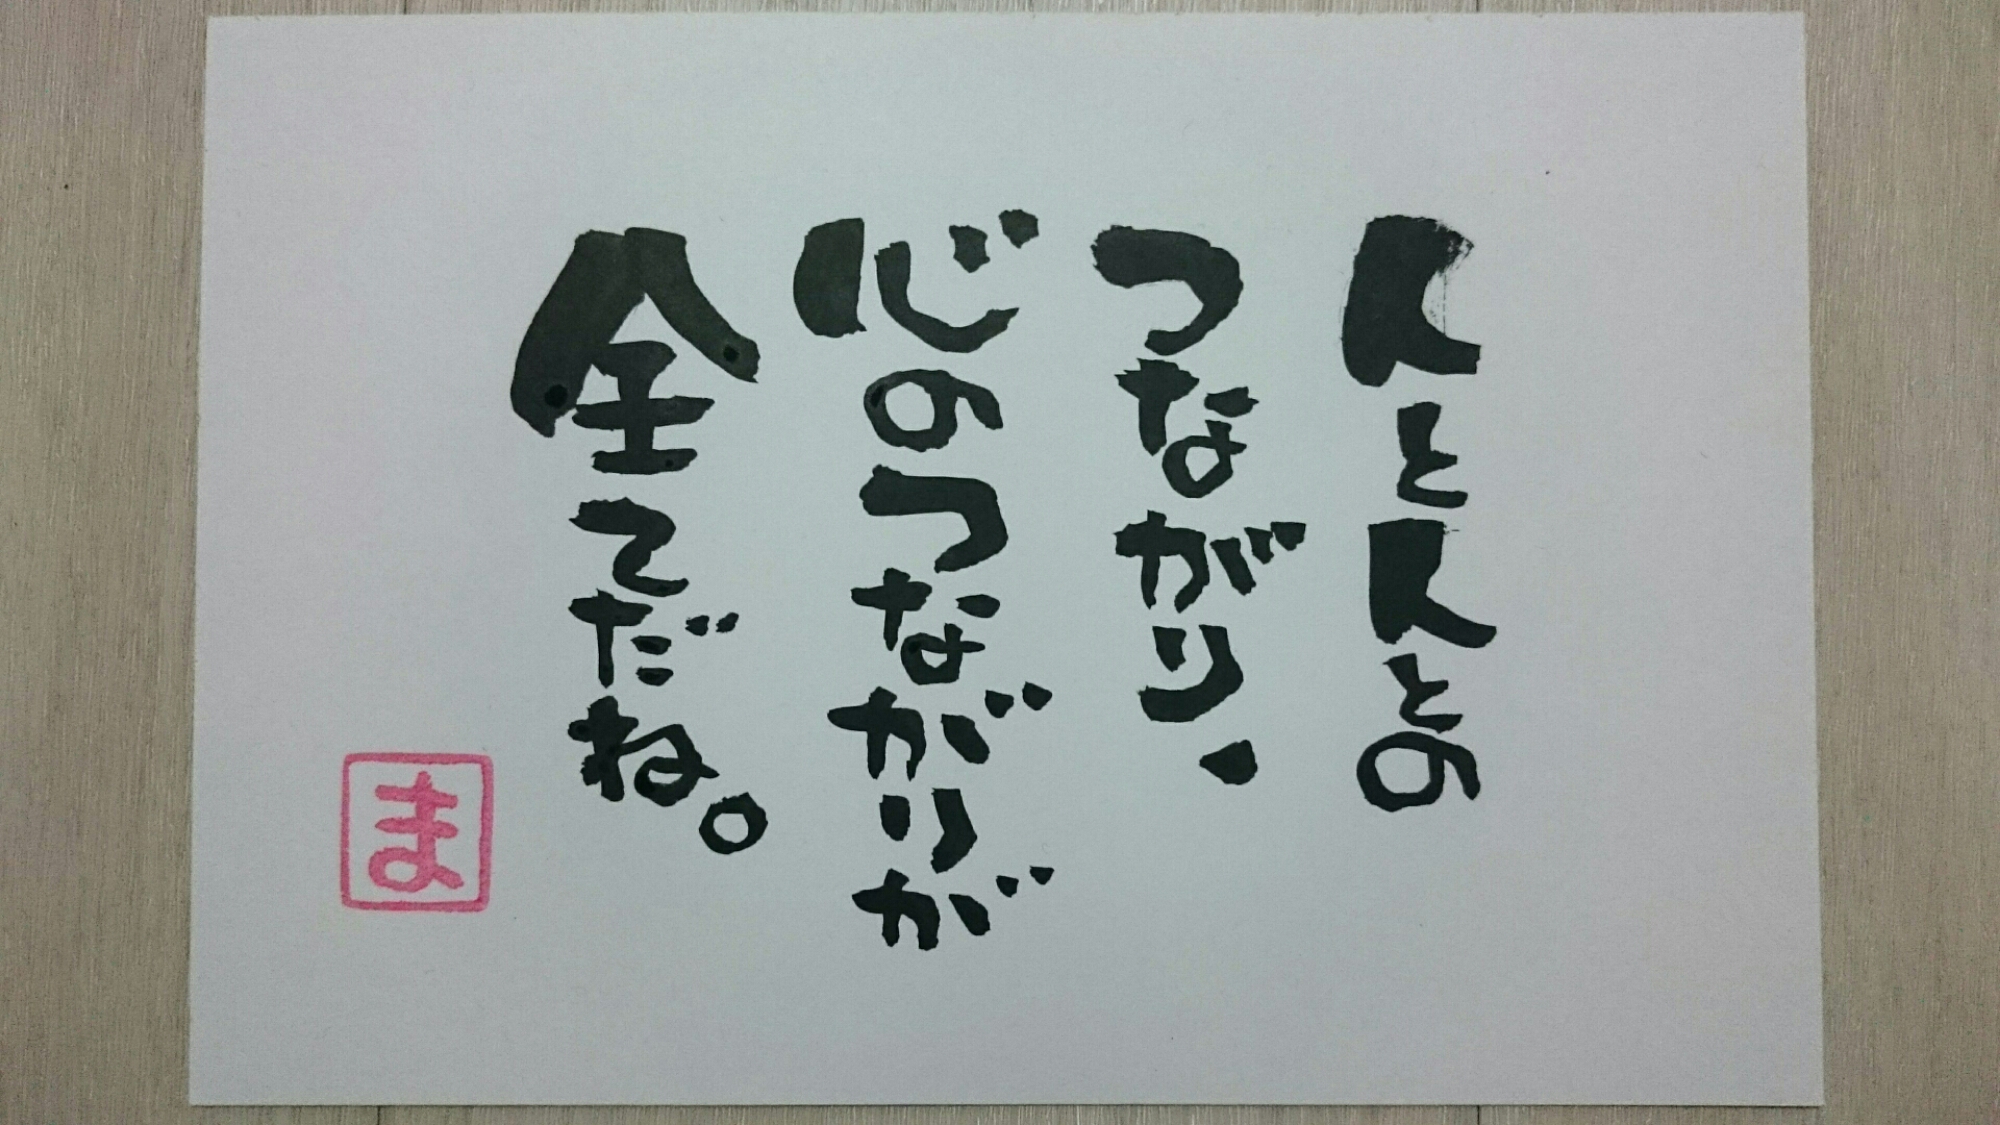 人と人との
つながり、
心のつながりが
全てだね。
ま